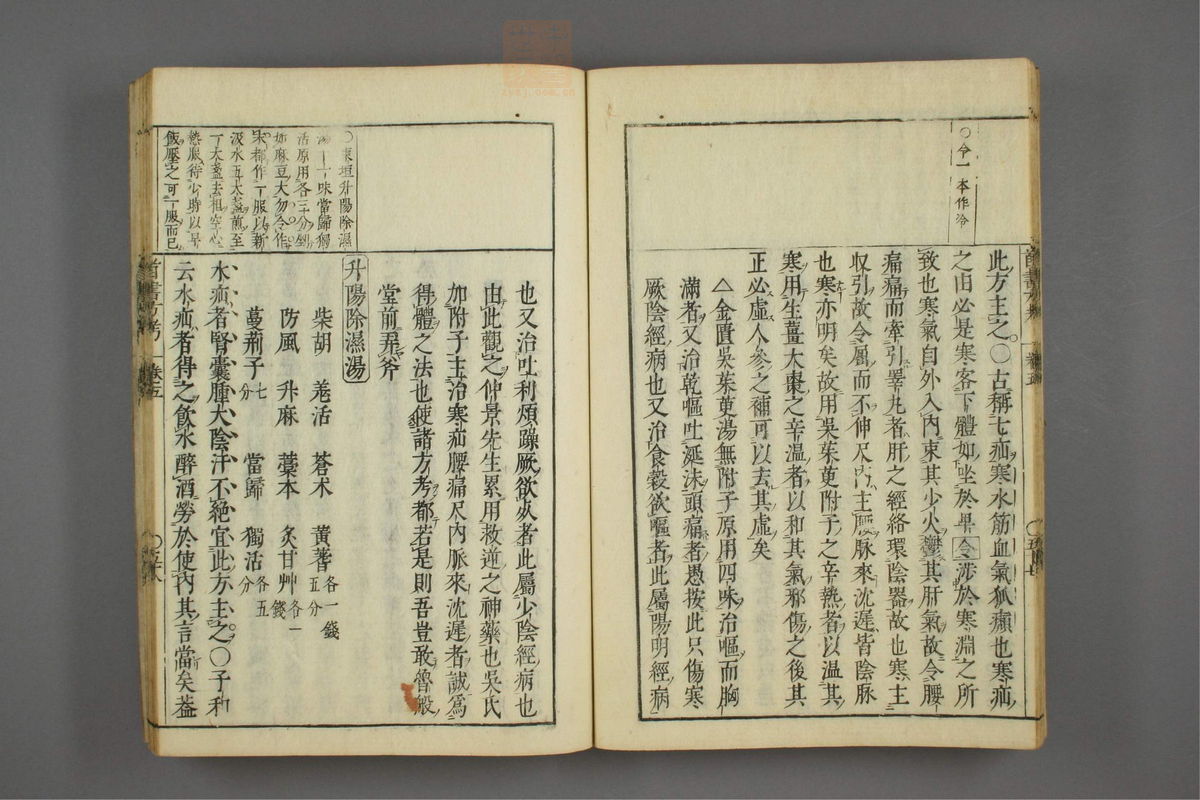 〇令一本作冷
此方主之〇古稱七疝寒水筋血氣狐㿗也寒疝
之由必是寒客下體如坐於卑令涉於寒淵之所
致也寒氣自外入內束其少火鬱其肝氣故令腰
痛痛而牽引睪丸者肝之經絡環陰器故也寒主
収引故令属而不伸尺內主腰脉來沈遲皆陰脉
也寒亦明矣故用吳茱萸附子之辛熱者以温其
寒用生薑大棗之辛溫者以和其氣邪傷之後其
正必虛人參之補可以去其虛矣
△金匱吳茱萸湯無附子原用四味治嘔而胸
滿者又治乾嘔吐涎沫頭痛者愚按此只傷寒
厥陰經病也又治食穀欲嘔者此属陽明經病
〇東垣升陽除濕
湯十一味當歸獨
活原用各三分剉
如麻豆大勿令作
末都作一服以新
汲水五大盞煎至
一大盞去粗空心
熱服待少時以早
飯壓之可一服而已
也又治吐利煩躁厥欲死者此屬少陰經病也
由此觀之仲景先生累用救逆之神藥也吳氏
加附子主治寒疝腰痛尺內脈來沈遲者誠爲
得體之法也使諸方考都若是則吾豈敢魯般
堂前弄斧
升陽除濕湯
柴胡 羌活 蒼术 黃蓍各一錢五分
防風 升麻 藁本 炙甘艸各一錢
蔓荊子七分 當歸 獨活各五分
水疝者腎囊腫大陰汗不絕宜此方主之〇子和
云水疝者得之飲水醉酒勞於使內其言當矣葢
卷五